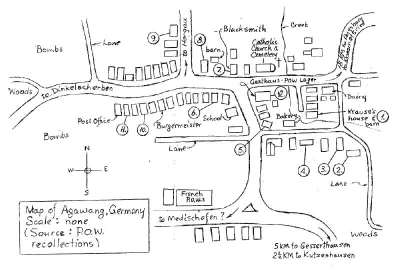 Blacksmith
Creek
Catholic
Church &
Cemetery
Lane
9
8
barn
7
Bombs
Gasthaus-POW Lager
Woods
to Dinkelscherben
Dairy
Krause's
house &
barn
1
12
6
School
Bakery
Post Office
11
10
Burgermeister
Bombs
5
Lane
4
3
2
N
W
E
S
Lane
French
P.O.W.s
to Medischofen?
Woods
Map of Agawang, Germany
Scale: none
(Source: P.O.W.
recollections)
5 KM to Gessertshausen
2½ KM to Kutzenhausen